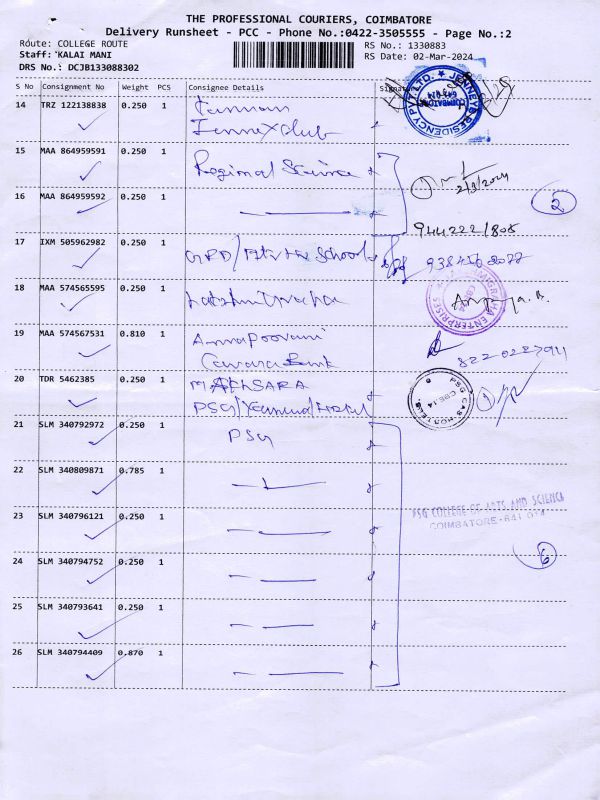 THE PROFESSIONAL COURIERS, COIMBATORE
Delivery Runsheet - PCC - Phone No.:0422-3505555 - Page No.:2
Route: COLLEGE ROUTE RS No.: 1330883
Staff: KALAI MANI RS Date: 02-Mar-2024
DRS No.: DCJB133088302
S No Consignment No Weight PCS Consignee Details Signature
14 TRZ 122138838 0.250 1
Jennexclub
15 MAA 864959591 0.250 1 Regional Science
2/3/2024
16 MAA 864959592 0.250 1
944222/808
2
17 IXM 505962982 0.250 1 School
18 MAA 574565595 0.250 1
19 MAA 574567531 0.810 1 Annapoorani
Canara Bank
20 TDR 5462385 0.250 1
PSG/ Hostel
1
21 SLM 340792972 0.250 1 PSG
22 SLM 340809871 0.785 1
23 SLM 340796121 0.250 1
PSG COLLEGE OF ARTS AND SCIENCE
COIMBATORE-641 014
24 SLM 340794752 0.250 1
6
25 SLM 340793641 0.250 1
26 SLM 340794409 0.870 1